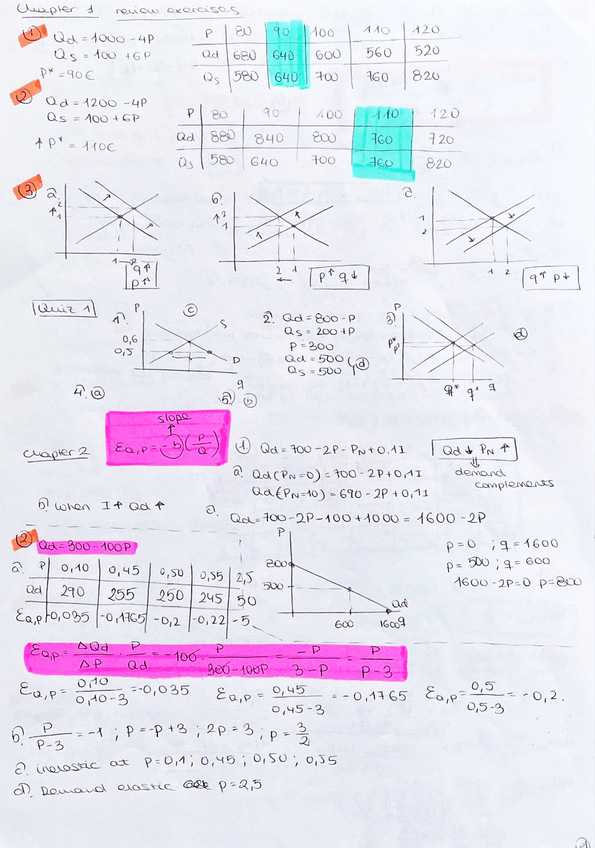 Chapter 1 review exercises
① Qd = 1000 - 4P
Qs = 100 + 6P
P* = 90€
P 80 90 100 110 120
Qd 680 640 600 560 520
Qs 580 640 700 760 820
② Qd = 1200 - 4P
Qs = 100 + 6P
↑ P* = 110€
P 80 90 100 110 120
Qd 880 840 800 760 720
Qs 580 640 700 760 820
③ a). 2 ↑ 1 1 → 2 q↑ p↑
b). ↑ 2 1 2 1 ← p↑ q↓
c). 1 2 1 2 q↑ p↓
Quiz 1
1). P 0,6 0,5 S D q ⓒ
2). Qd = 800 - P
Qs = 200 + P
P = 300
Qd = 500
Qs = 500 ⓓ
3) P P* P' q* q' q ⓓ
4). ⓐ
5). ⓑ
Chapter 2
slope
↑
εQ,P = -b (P/Q)
① Qd = 700 - 2P - PN + 0.1I
a). Qd (PN=0) = 700 - 2P + 0,1I
Qd (PN=10) = 690 - 2P + 0,1I
Qd ↓ PN ↑
⇓
demand
complements
b) when I ↑ Qd ↑
c). Qd = 700 - 2P - 100 + 1000 = 1600 - 2P
P 800 500 600 1600 Qd q
p = 0 ; q = 1600
p = 500 ; q = 600
1600 - 2P = 0 p = 800
② Qd = 300 - 100P
a). P 0,10 0,45 0,50 0,55 2,5
Qd 290 255 250 245 50
εQ,P -0,035 -0,1765 -0,2 -0,22 -5
εQ,P = ΔQd/ΔP · P/Qd = -100 · P/300-100P = -P/3-P = P/P-3
εQ,P = 0,10/0,10-3 = -0,035 εQ,P = 0,45/0,45-3 = -0,1765 εQ,P = 0,5/0,5-3 = -0,2.
b). P/P-3 = -1 ; P = -P + 3 ; 2P = 3 ; P = 3/2
c). inelastic at P = 0,1 ; 0,45 ; 0,50 ; 0,55
d). Demand elastic P = 2,5